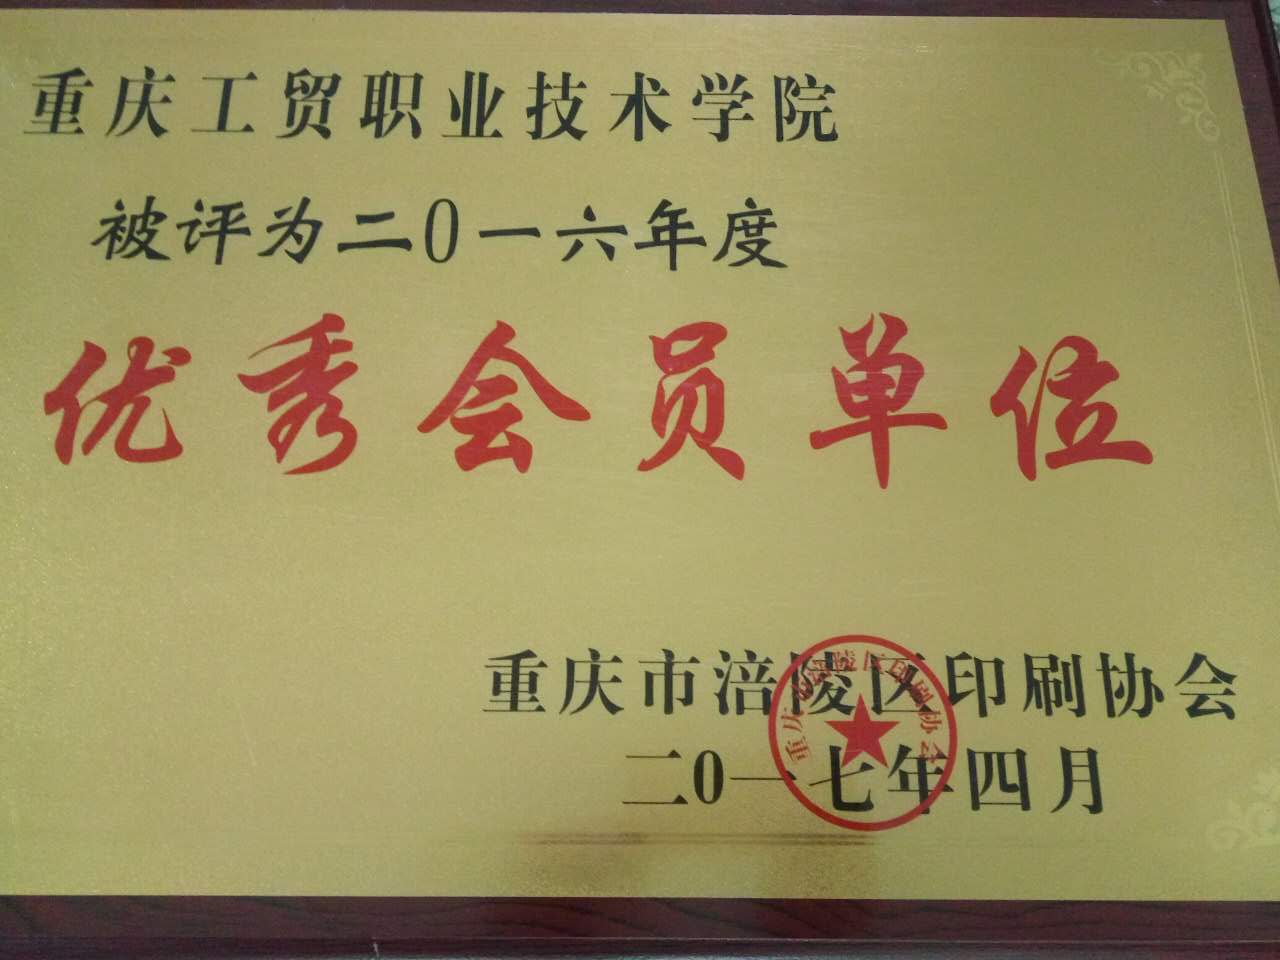 重庆工贸职业技术学院
被评为二0一六年度
优秀会员单位
重庆市涪陵区印刷协会
二0一七年四月
重庆市涪陵区印刷协会